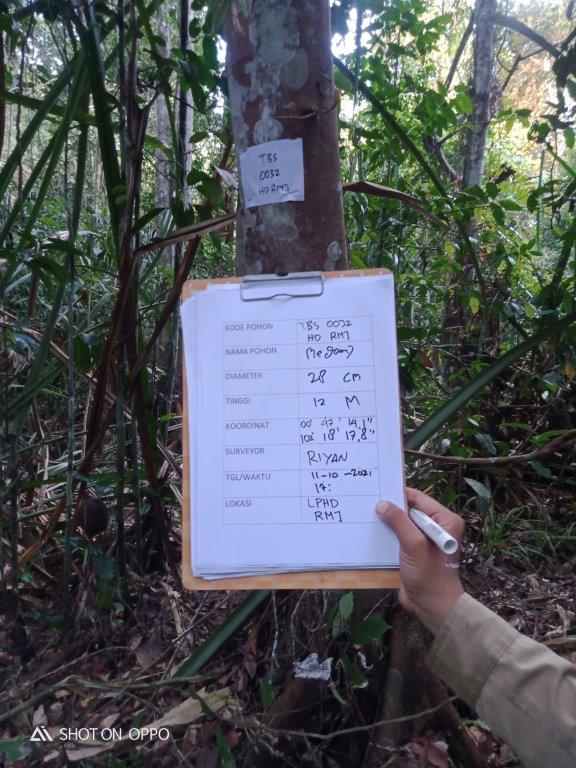 TBS
0032
HD RMJ
KODE POHON TBS 0032
HD RMJ
NAMA POHON Medang
DIAMETER 28 CM
TINGGI 12 M
KOORDINAT 00° 47' 14,1"
102° 18' 17,8"
SURVEYOR RIYAN
TGL/WAKTU 11-10-2021
17:
LOKASI LPHD
RMJ
SHOT ON OPPO